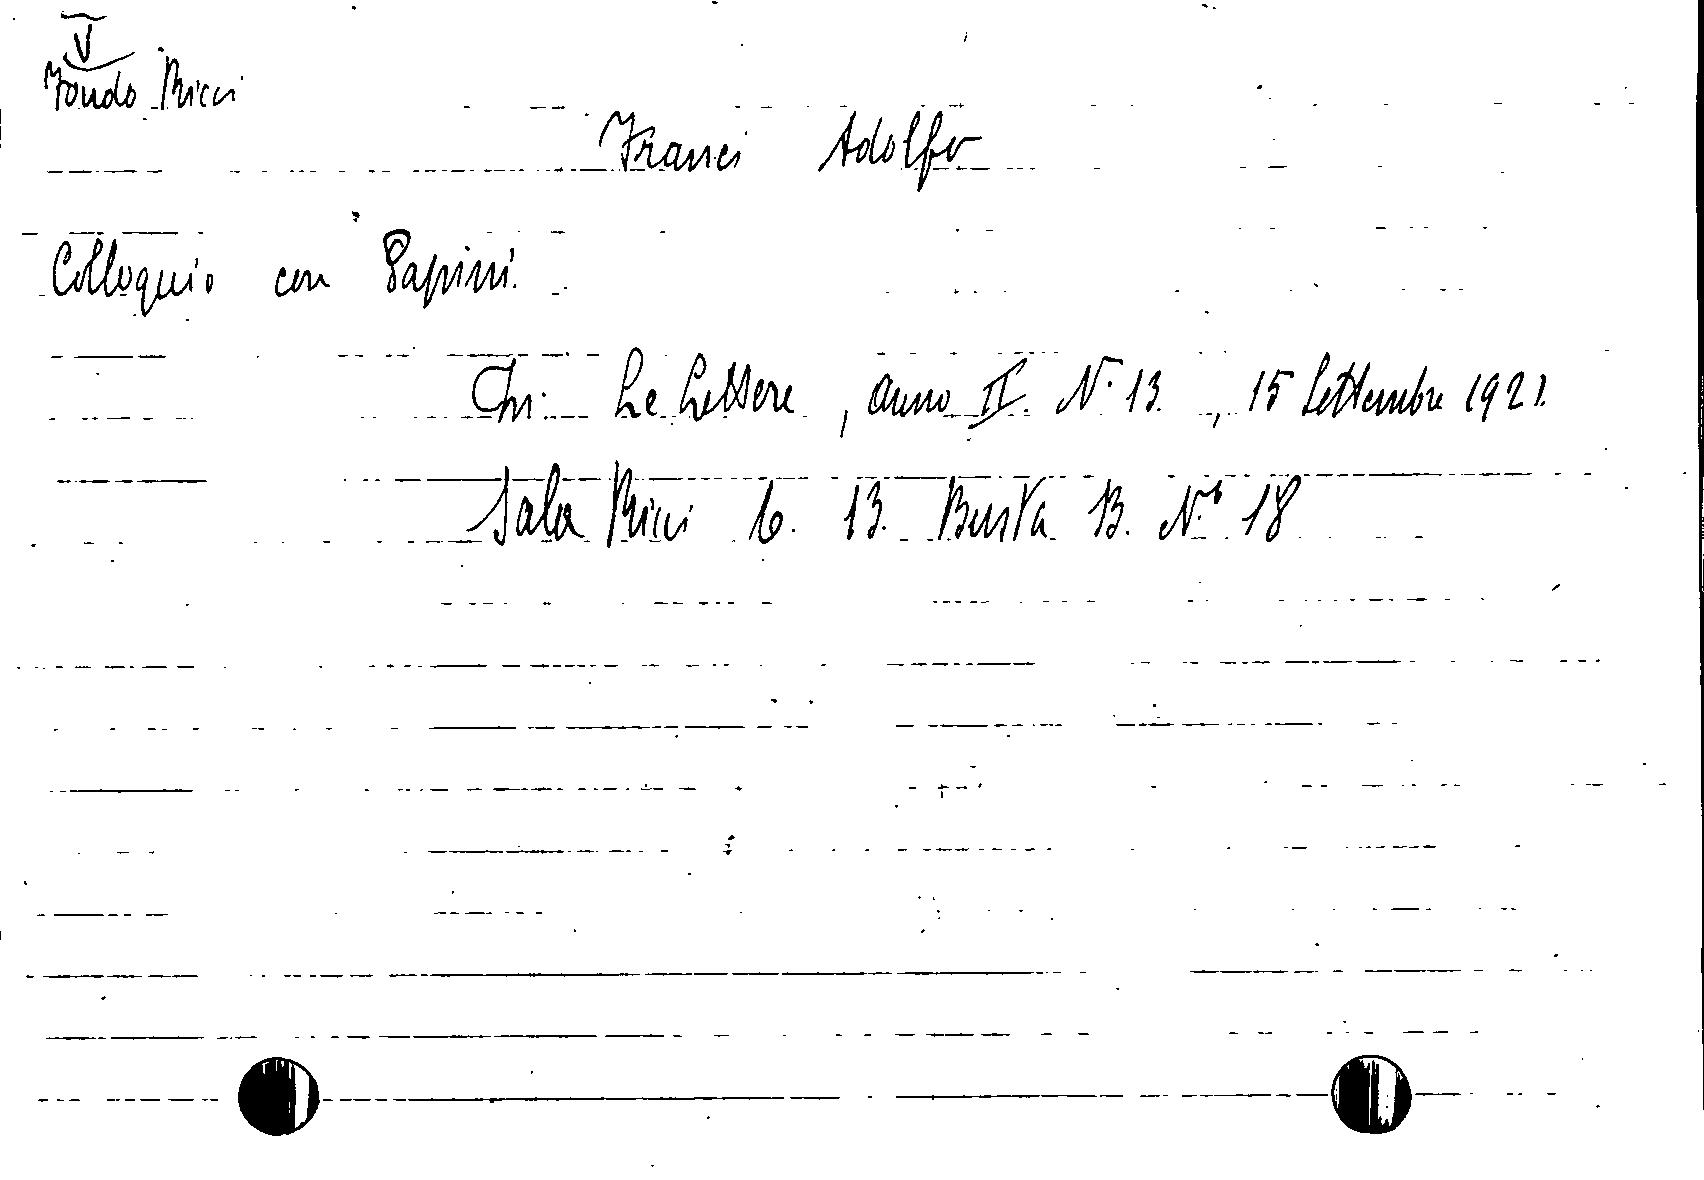 V
Fondo Ricci
Franci Adolfo
Colloquio con Papini.
In: Le Lettere, anno II. N. 13., 15 Settembre 1921.
Sala Ricci 6. 13. Busta B. N.° 18